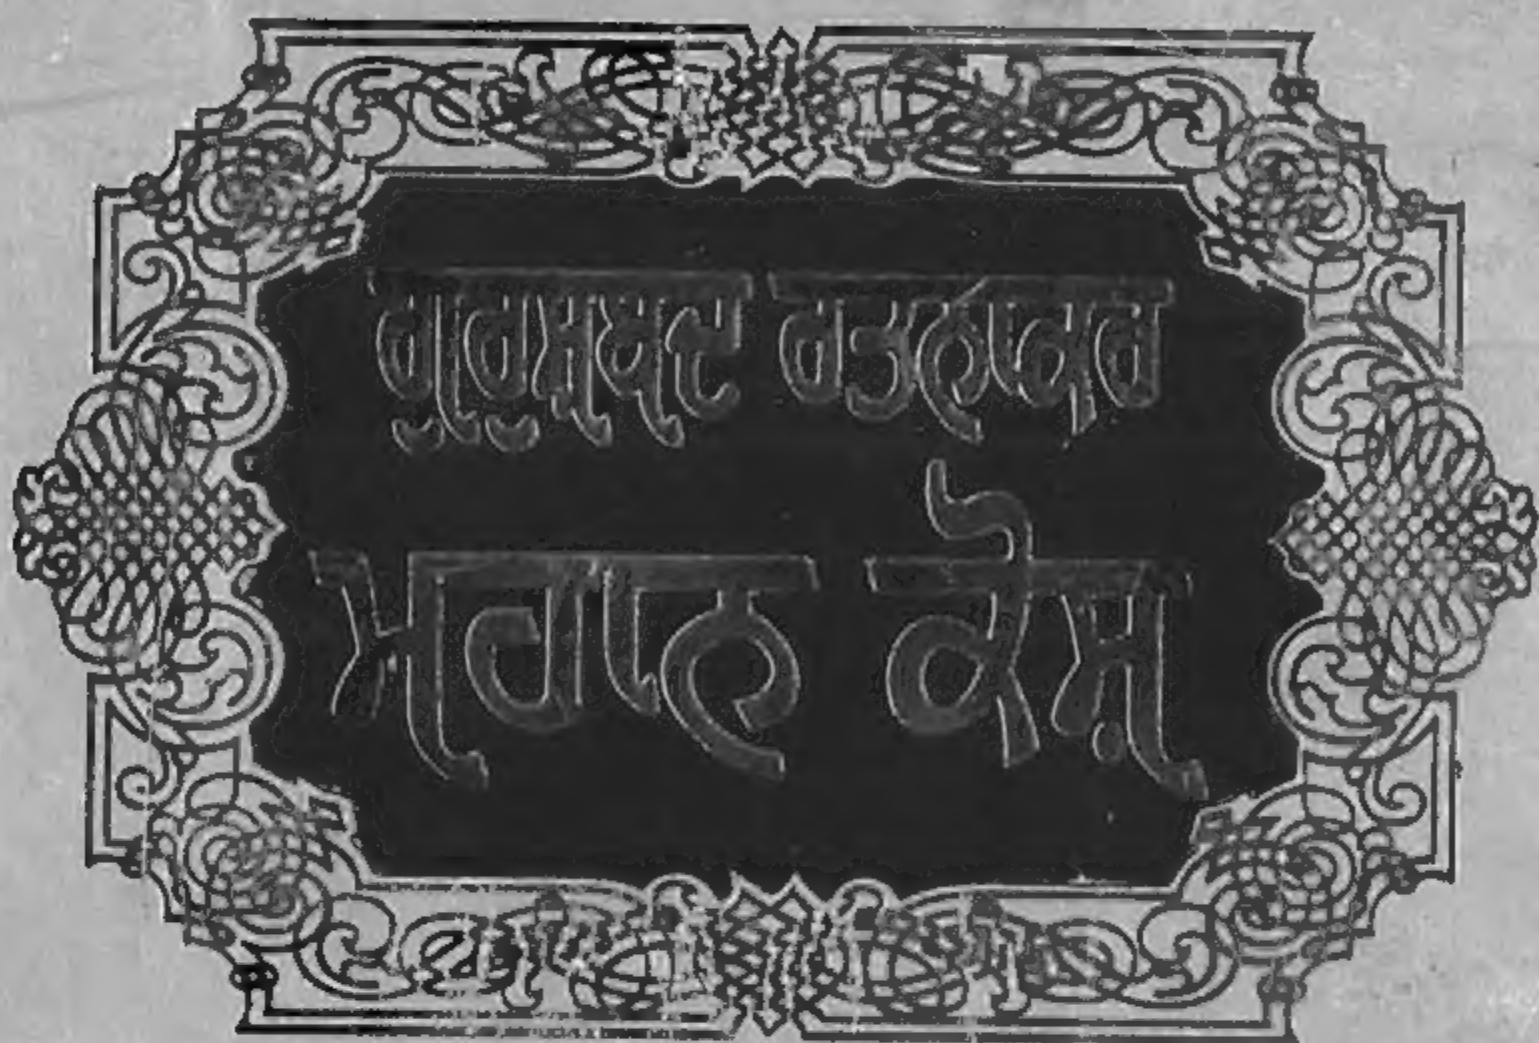 ਗੁਰੁਸ਼ਬਦ ਰਤਨਾਕਰ
ਮਹਾਨ ਕੋਸ਼